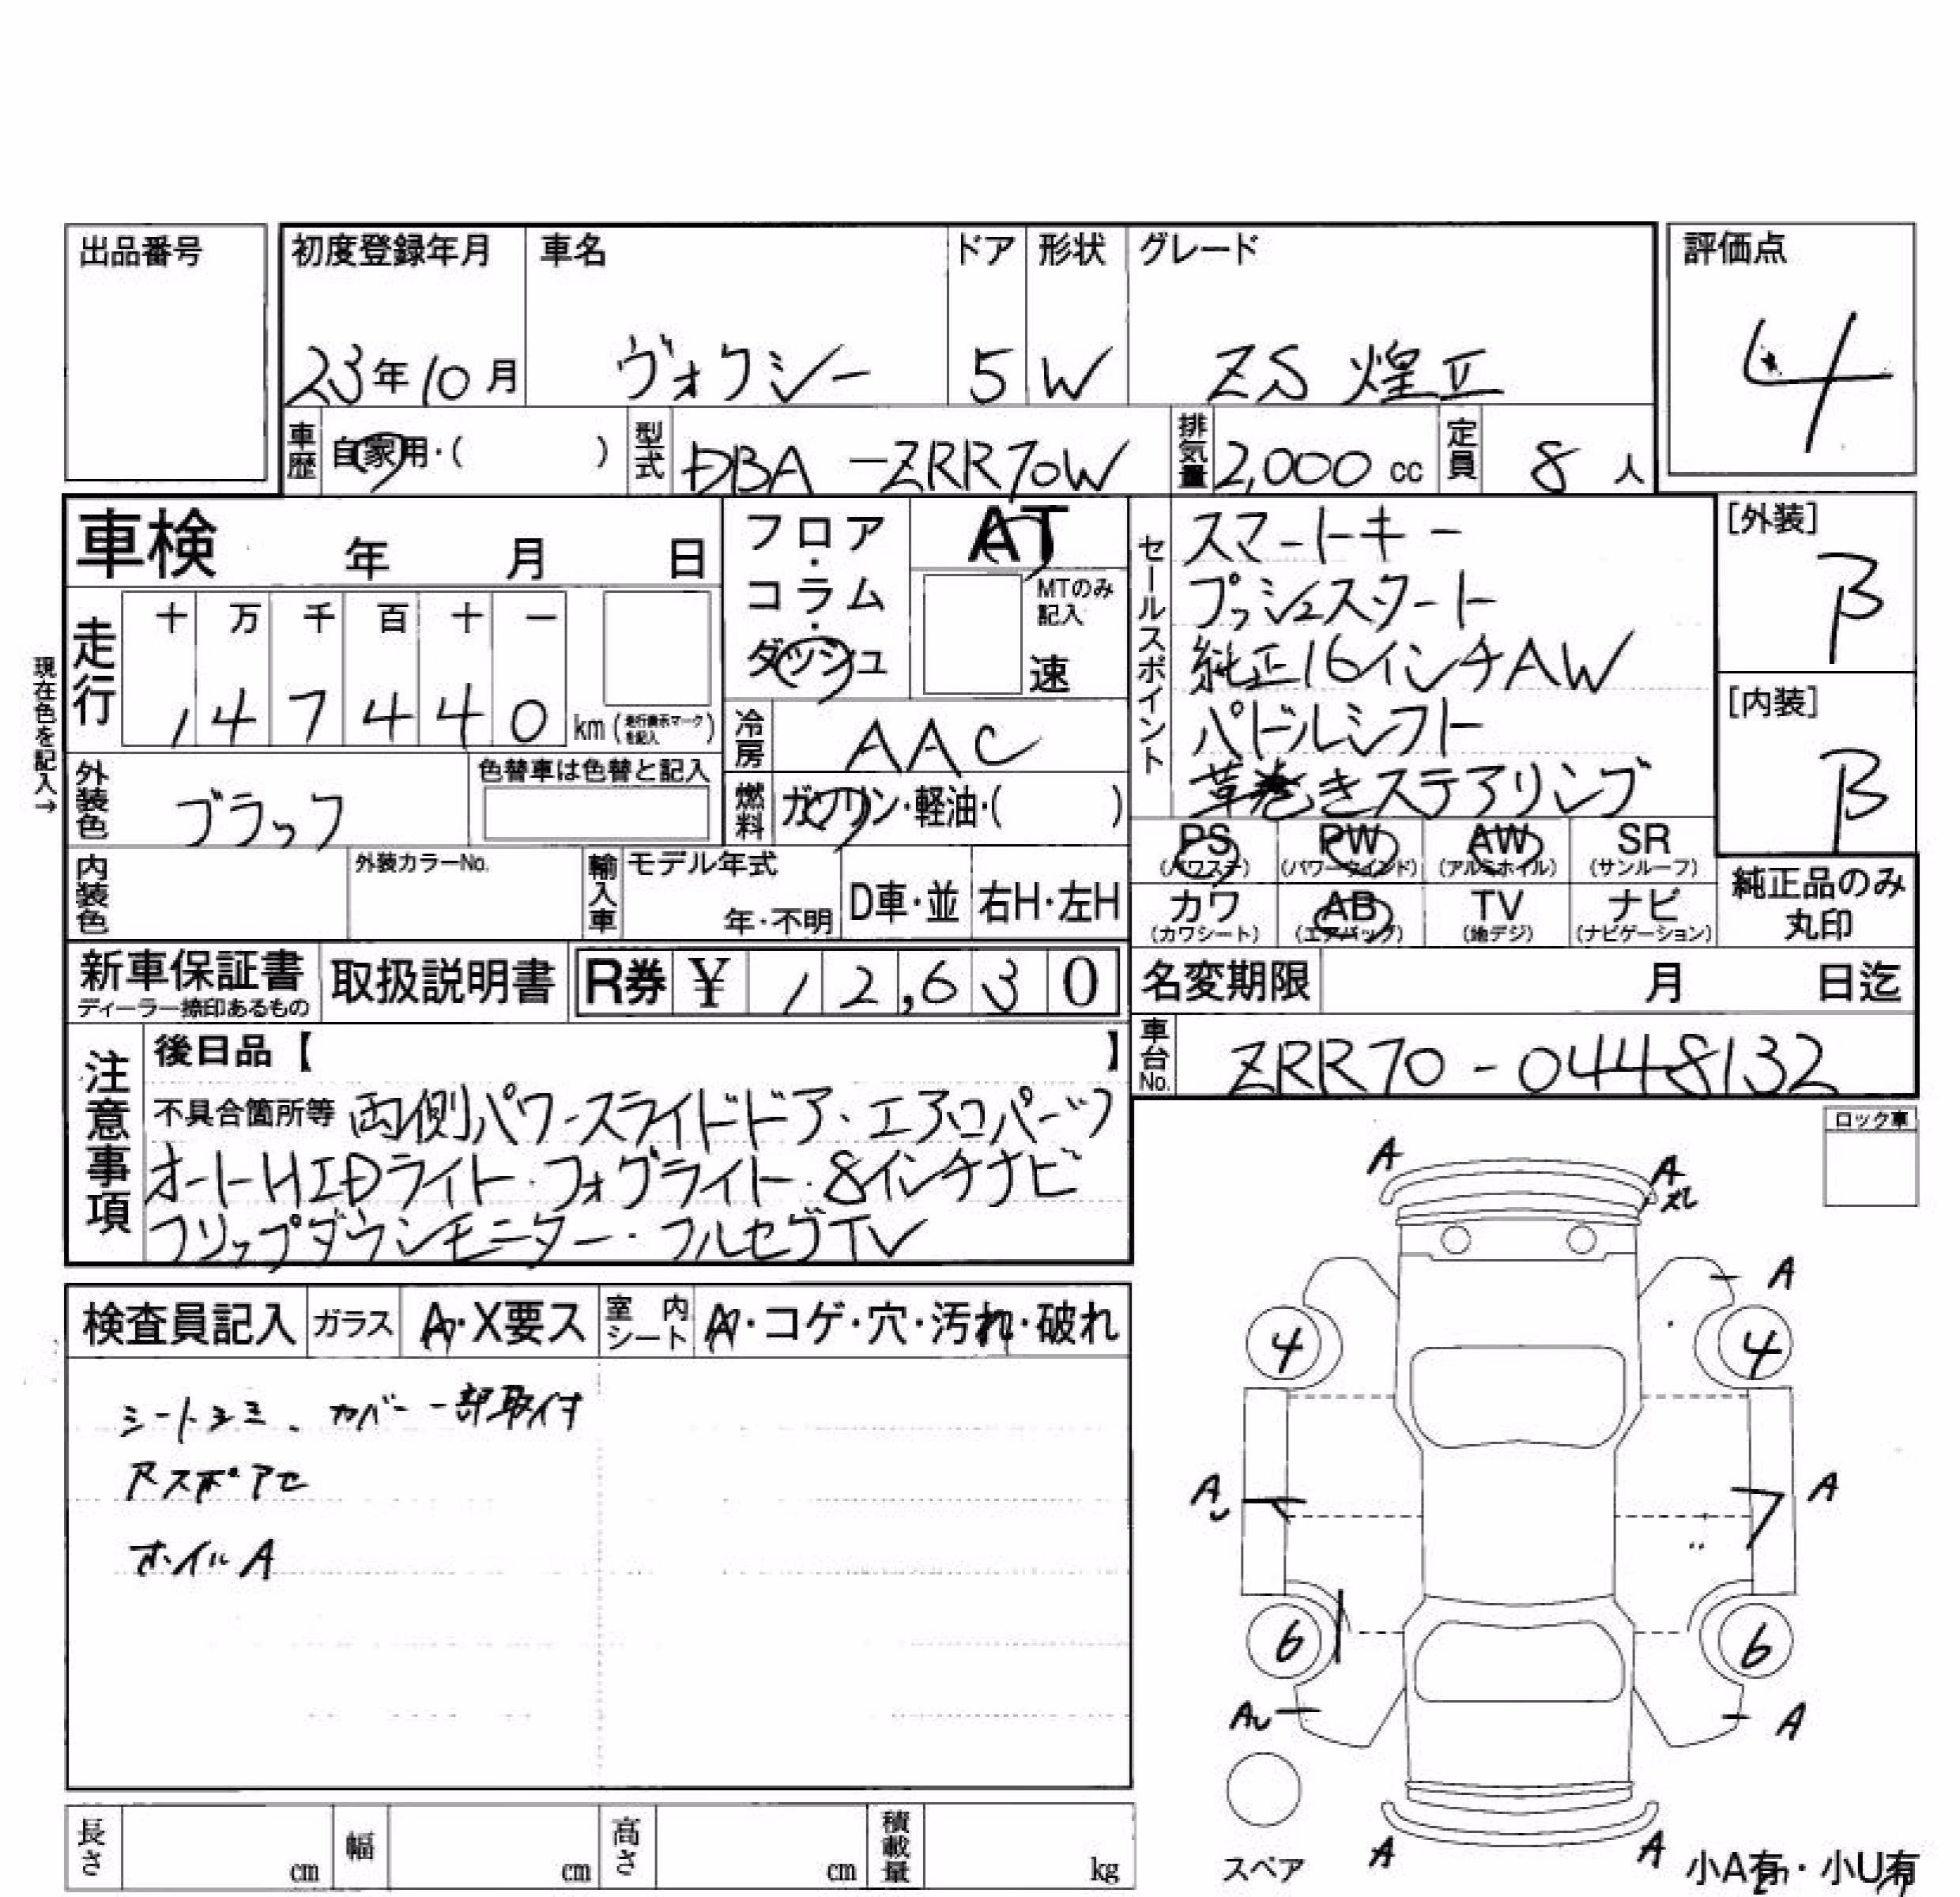 出品番号
初度登録年月 車名 ドア 形状 グレード
評価点
23年10月 ヴォクシー 5 W ZS 煌Ⅱ
4
車歴 自家用・( ) 型式 DBA-ZRR70W 排気量 2,000 cc 定員 8 人
車検 年 月 日
フロア・コラム・ダッシュ
AT
MTのみ記入
速
セールスポイント
スマートキー
プッシュスタート
純正16インチAW
パドルシフト
革巻きステアリング
[外装]
B
[内装]
B
現在色を記入→
走行 十 万 千 百 十 一
1 4 7 4 4 0 km (走行表示マークを記入)
冷房 AAC
外装色 ブラック 色替車は色替と記入
燃料 ガソリン・軽油・( )
PS (パワステ) PW (パワーウインド) AW (アルミホイル) SR (サンルーフ)
カワ (カワシート) AB (エアバッグ) TV (地デジ) ナビ (ナビゲーション)
純正品のみ丸印
内装色 外装カラーNo. 輸入車 モデル年式 年・不明 D車・並 右H・左H
新車保証書 ディーラー捺印あるもの 取扱説明書 R券 ¥ 12,630
名変期限 月 日迄
車台No. ZRR70-0448132
注意事項
後日品【 】
不具合箇所等 両側パワースライドドア・エアロパーツ
オートHIDライト・フォグライト・8インチナビ
フリップダウンモニター・フルセグTV
ロック車
検査員記入 ガラス A・X要ス 室内シート A・コゲ・穴・汚れ・破れ
シートヨゴミ、カバー一部取付
ホイルA
A
A
A
4
4
A
A
6
6
AU
A
スペア
A
A
小A有・小U有
長さ cm 幅 cm 高さ cm 積載量 kg